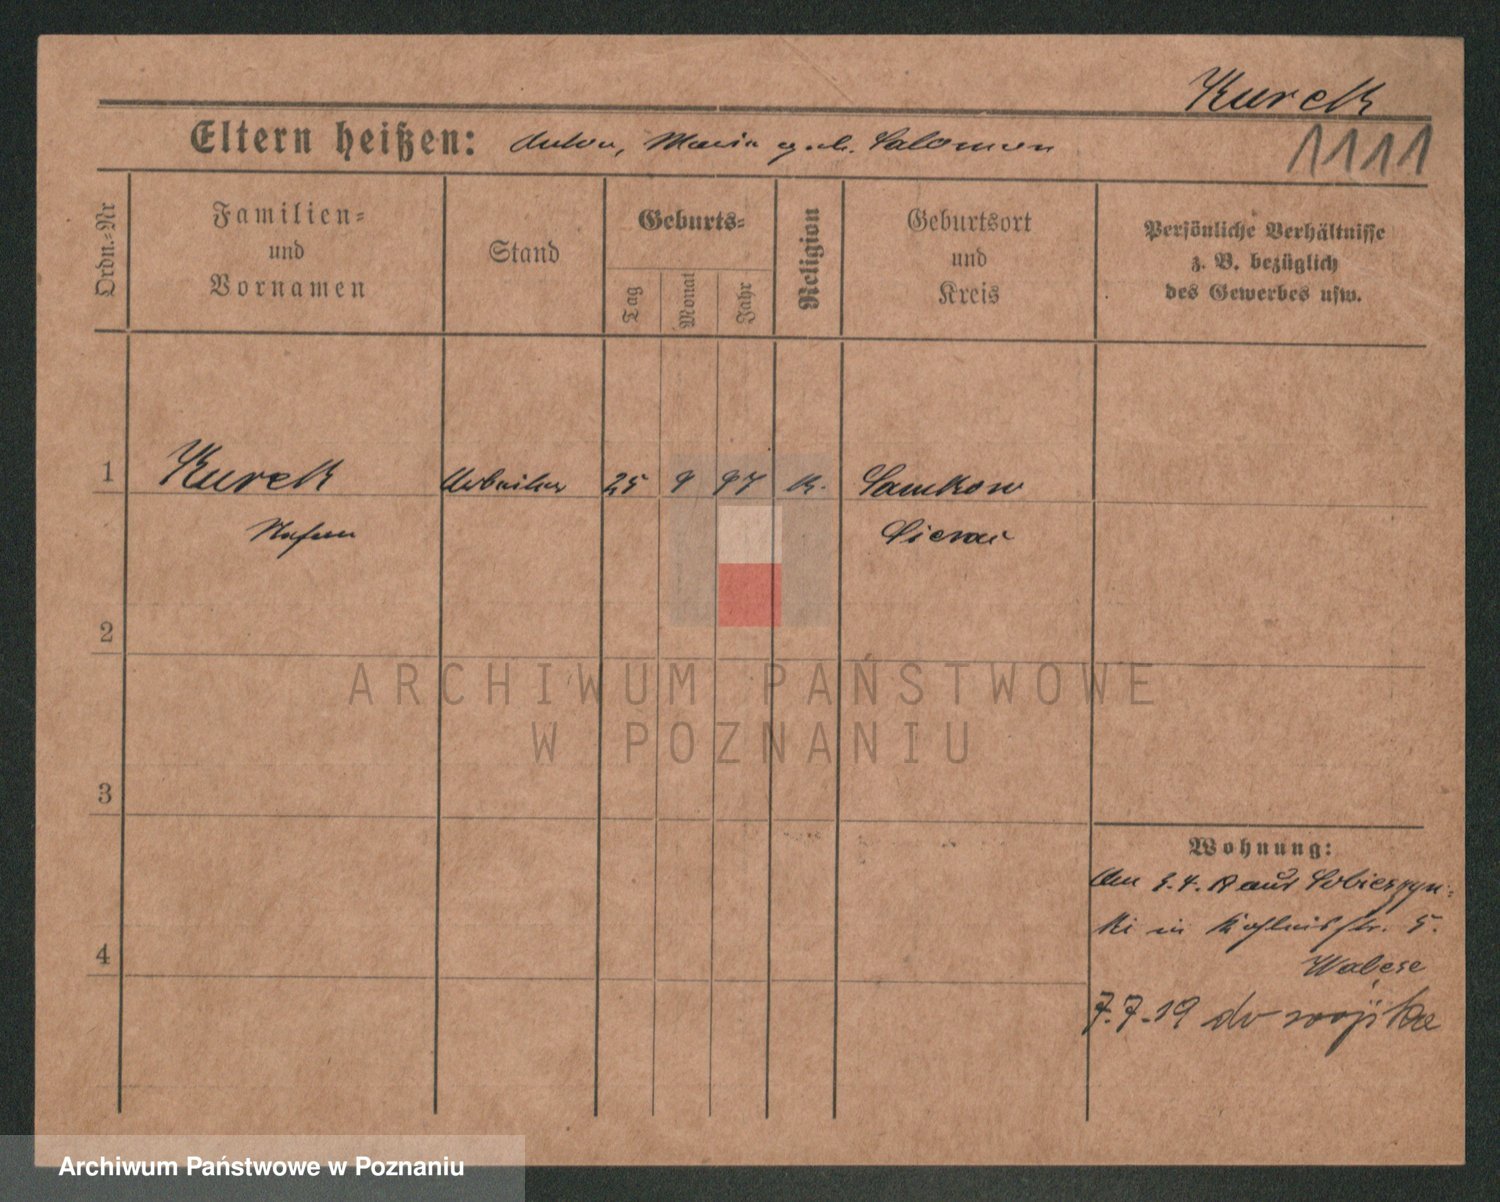 Kurek
Eltern heißen: Anton, Maria geb. Salomon
1111
Ordn.=Nr
Familien=
und
Vornamen
Stand
Geburts=
Tag
Monat
Jahr
Religion
Geburtsort
und
Kreis
Persönliche Verhältnisse
z. B. bezüglich
des Gewerbes usw.
1 Kurek Arbeiter 25 9 97 k.
Stefan
2
3
4
Wohnung:
Am 3.4. aus
ki in 5.
7.7.19 do wojska
ARCHIWUM PAŃSTWOWE
W POZNANIU
Archiwum Państwowe w Poznaniu